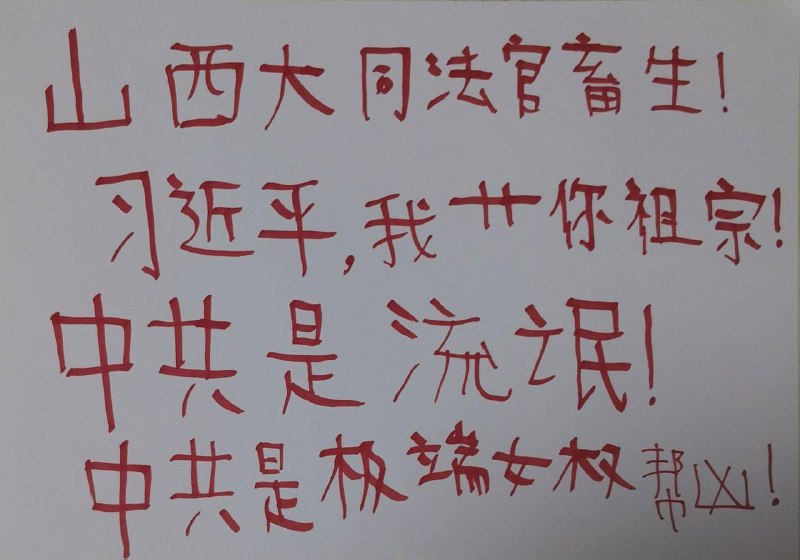 山西大同法官畜生！
习近平,我艹你祖宗！
中共是流氓！
中共是极端女权帮凶！